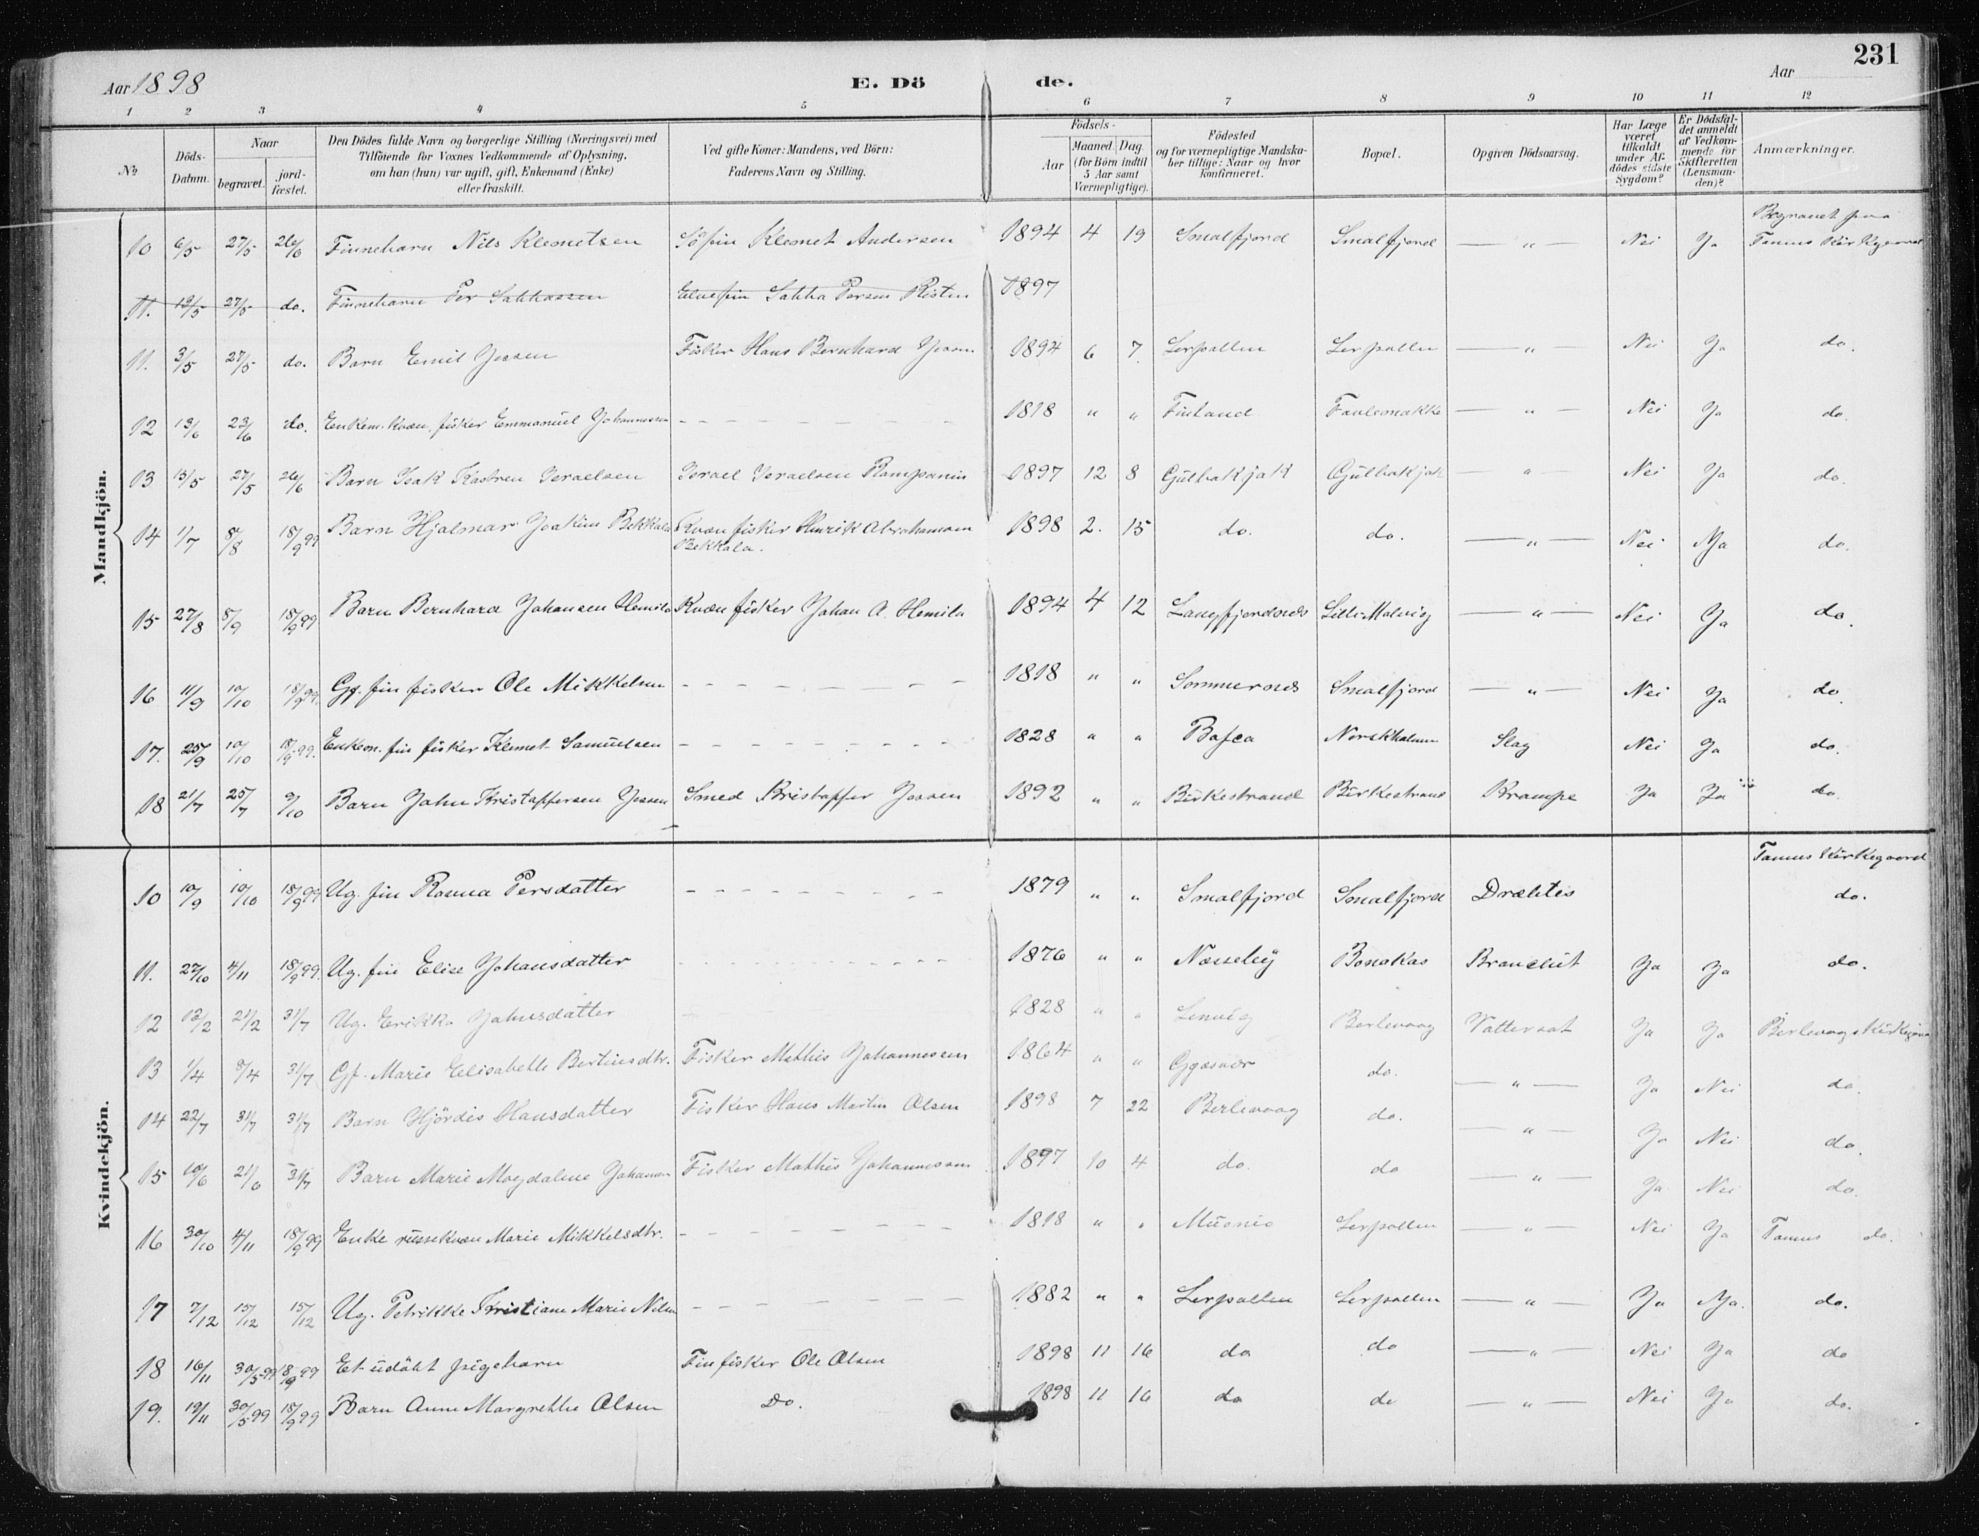 231
Aar 1898
E. Dö
de.
Aar
1 2 3 4 5 6 7 8 9 10 11 12
No
Döds-Datum.
Naar
begravet.
jord-fæstet.
Den Dödes fulde Navn og borgerlige Stilling (Næringsvei) med
Tilföiende for Voxnes Vedkommende af Oplysning,
om han (hun) var ugift, gift, Enkemand (Enke)
eller fraskilt.
Ved gifte Koner: Mandens, ved Börn:
Faderens Navn og Stilling.
Födsels-
Aar
Maaned. Dag.
(for Börn indtil
5 Aar samt
Værnepligtige).
Födested
og for værnepligtige Mandska-
ber tillige: Naar og hvor
konfirmeret.
Bopæl.
Opgiven Dödsaarsag.
Har Læge
været
tilkaldt
under Af-
dödes sidste
Sygdom?
Er Dödsfal-
det anmeldt
af Vedkom-
mende for
Skifteretten
(Lensman-
den)?
Anmærkninger.
Mandkjön.
10 6/5 27/5 26/6 Finnebarn Nils Klemetsen Söfin Klemet Andersen 1894 4 19 Smalfjord Smalfjord — " — Nei Ja Begravet paa Tanens Kirkegaard
11. 12/5 27/5 do. Finnebarn Per Sakkassen Elvefin Sakka Persen Risten 1897
11. 3/5 27/5 do. Barn Emil Jessen Fisker Hans Bernhard 1894 6 7. Lerpollen Lerpollen — " — Nei Ja do.
12 13/6 23/6 do. Enkem. kvæn. fisker Emmanuel Johannessen - - - 1818 " " Finland — " — Nei Ja do.
13 15/5 27/5 26/6 Barn Isak Kastren Israelsen Israel Israelsen 1897 12 8 Gulhakjok Gulhakjok — " — Nei Ja do.
14 1/7 8/8 18/9 99 Barn Hjalmar Joakim Bekkala Kvæn fisker Henrik Abrahamsen Bekkala. 1898 2. 15 do. do. — " — Nei Ja do.
15 27/8 8/9 18/9 99 Barn Bernhard Johansen Hemila Kvæn fisker Johan A. Hemila 1894 4 12 Langfjordnes Lille-Molvig — " — Nei Ja do.
16 11/9 10/10 18/9 99. Gf. fin fisker Ole Mikkelsen - - - 1818 " " Sommernes Smalfjord — " — Nei Ja do.
17. 25/9 10/10 18/9 99. Enkem. fin fisker Klemet Samuelsen - - - 1828 " " Norskholmen Slag Nei Ja do.
18 21/7 25/7 9/10 Barn John Kristoffersen Jessen Smed Kristoffer Jessen 1892 " " Birkestrand Birkestrand Krampe Ja Ja do.
Kvindekjön.
Tanens Kirkegaard
10 10/9 10/10 18/9 99 Ug. fin Rasma Persdatter - - - 1879 " " Smalfjord Smalfjord do.
11. 27/10 4/11 18/9 99. Ug. fin Elise Johansdatter - - - 1876 " " Næsseby Bonakas Ja Ja do.
12 13/2 21/2 31/7 Ug. Erikka Johnsdatter 1828 " " Lenvig Berlevaag Vattersot Ja Ja Berlevaags Kirkegaard
13 1/4 9/4 31/7 Gf. Marie Elisabeth Bertinsdtr. Fisker Mathis Johannessen 1864 " " Gjæsvær do. — " — Ja Nei do.
14 22/7 31/7 31/7 Barn Hjördis Hansdatter Fisker Hans Martin Olsen 1898 7 22 Berlevaag do. — " — Ja Nei do.
15 10/6 21/6 31/7 Barn Marie Magdalene Johansen Fisker Mathis Johannessen 1897 10 4 do. do — " — Ja Nei do.
16 30/10 4/11 18/9 99 Enke russekvæn Marie Mikkelsdtr. - - - 1818 " " Muonio Lerpollen — " — Nei Ja Tanens do.
17 7/12 15/12 15/12 Ug. Petrikke Kristiane Marie Nilsen - - - 1882 " " Lerpollen Lerpollen — " — Ja Ja. do.
18 16/11 30/5 99 18/9 99 Et udöbt pigebarn Fin fisker Ole Olsen 1898 11 16 do do — " — Nei Ja do
19. 19/11 30/5 99 18/9 99 Barn Anne Margrethe Olsen Do. 1898 11 16 do do — " — Nei Ja do.